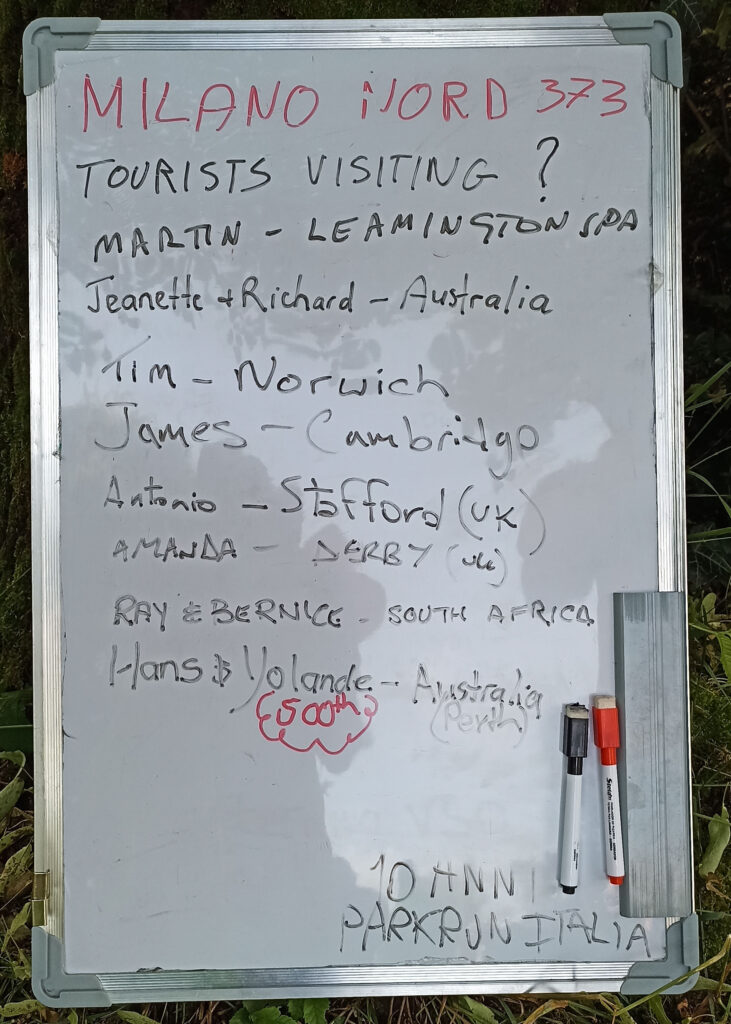 MILANO NORD 373
TOURISTS VISITING ?
MARTIN - LEAMINGTON SPA
Jeanette + Richard - Australia
Tim - Norwich
James - Cambridge
Antonio - Stafford (UK)
AMANDA - DERBY (UK)
RAY & BERNICE - SOUTH AFRICA
Hans & Yolande - Australia
(500th) (Perth)
10 ANNI
PARKRUN ITALIA